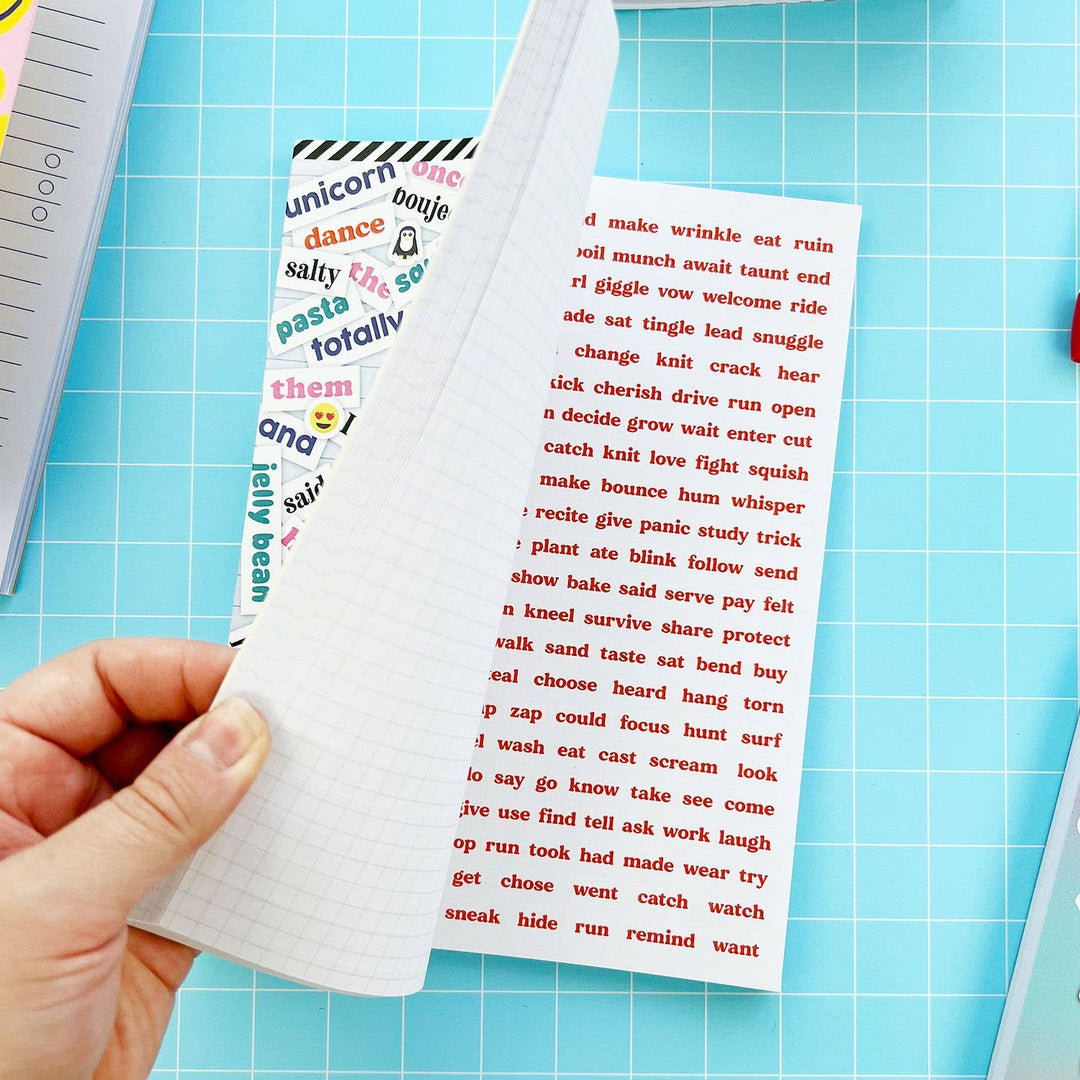 unicorn
dance
salty
pasta
totally
them
and
said
jelly bean
make wrinkle eat ruin
munch await taunt end
giggle vow welcome ride
sat tingle lead snuggle
change knit crack hear
cherish drive run open
decide grow wait enter cut
catch knit love fight squish
make bounce hum whisper
recite give panic study trick
plant ate blink follow send
show bake said serve pay felt
kneel survive share protect
walk sand taste sat bend buy
choose heard hang torn
zap could focus hunt surf
wash eat cast scream look
say go know take see come
give use find tell ask work laugh
run took had made wear try
get chose went catch watch
sneak hide run remind want